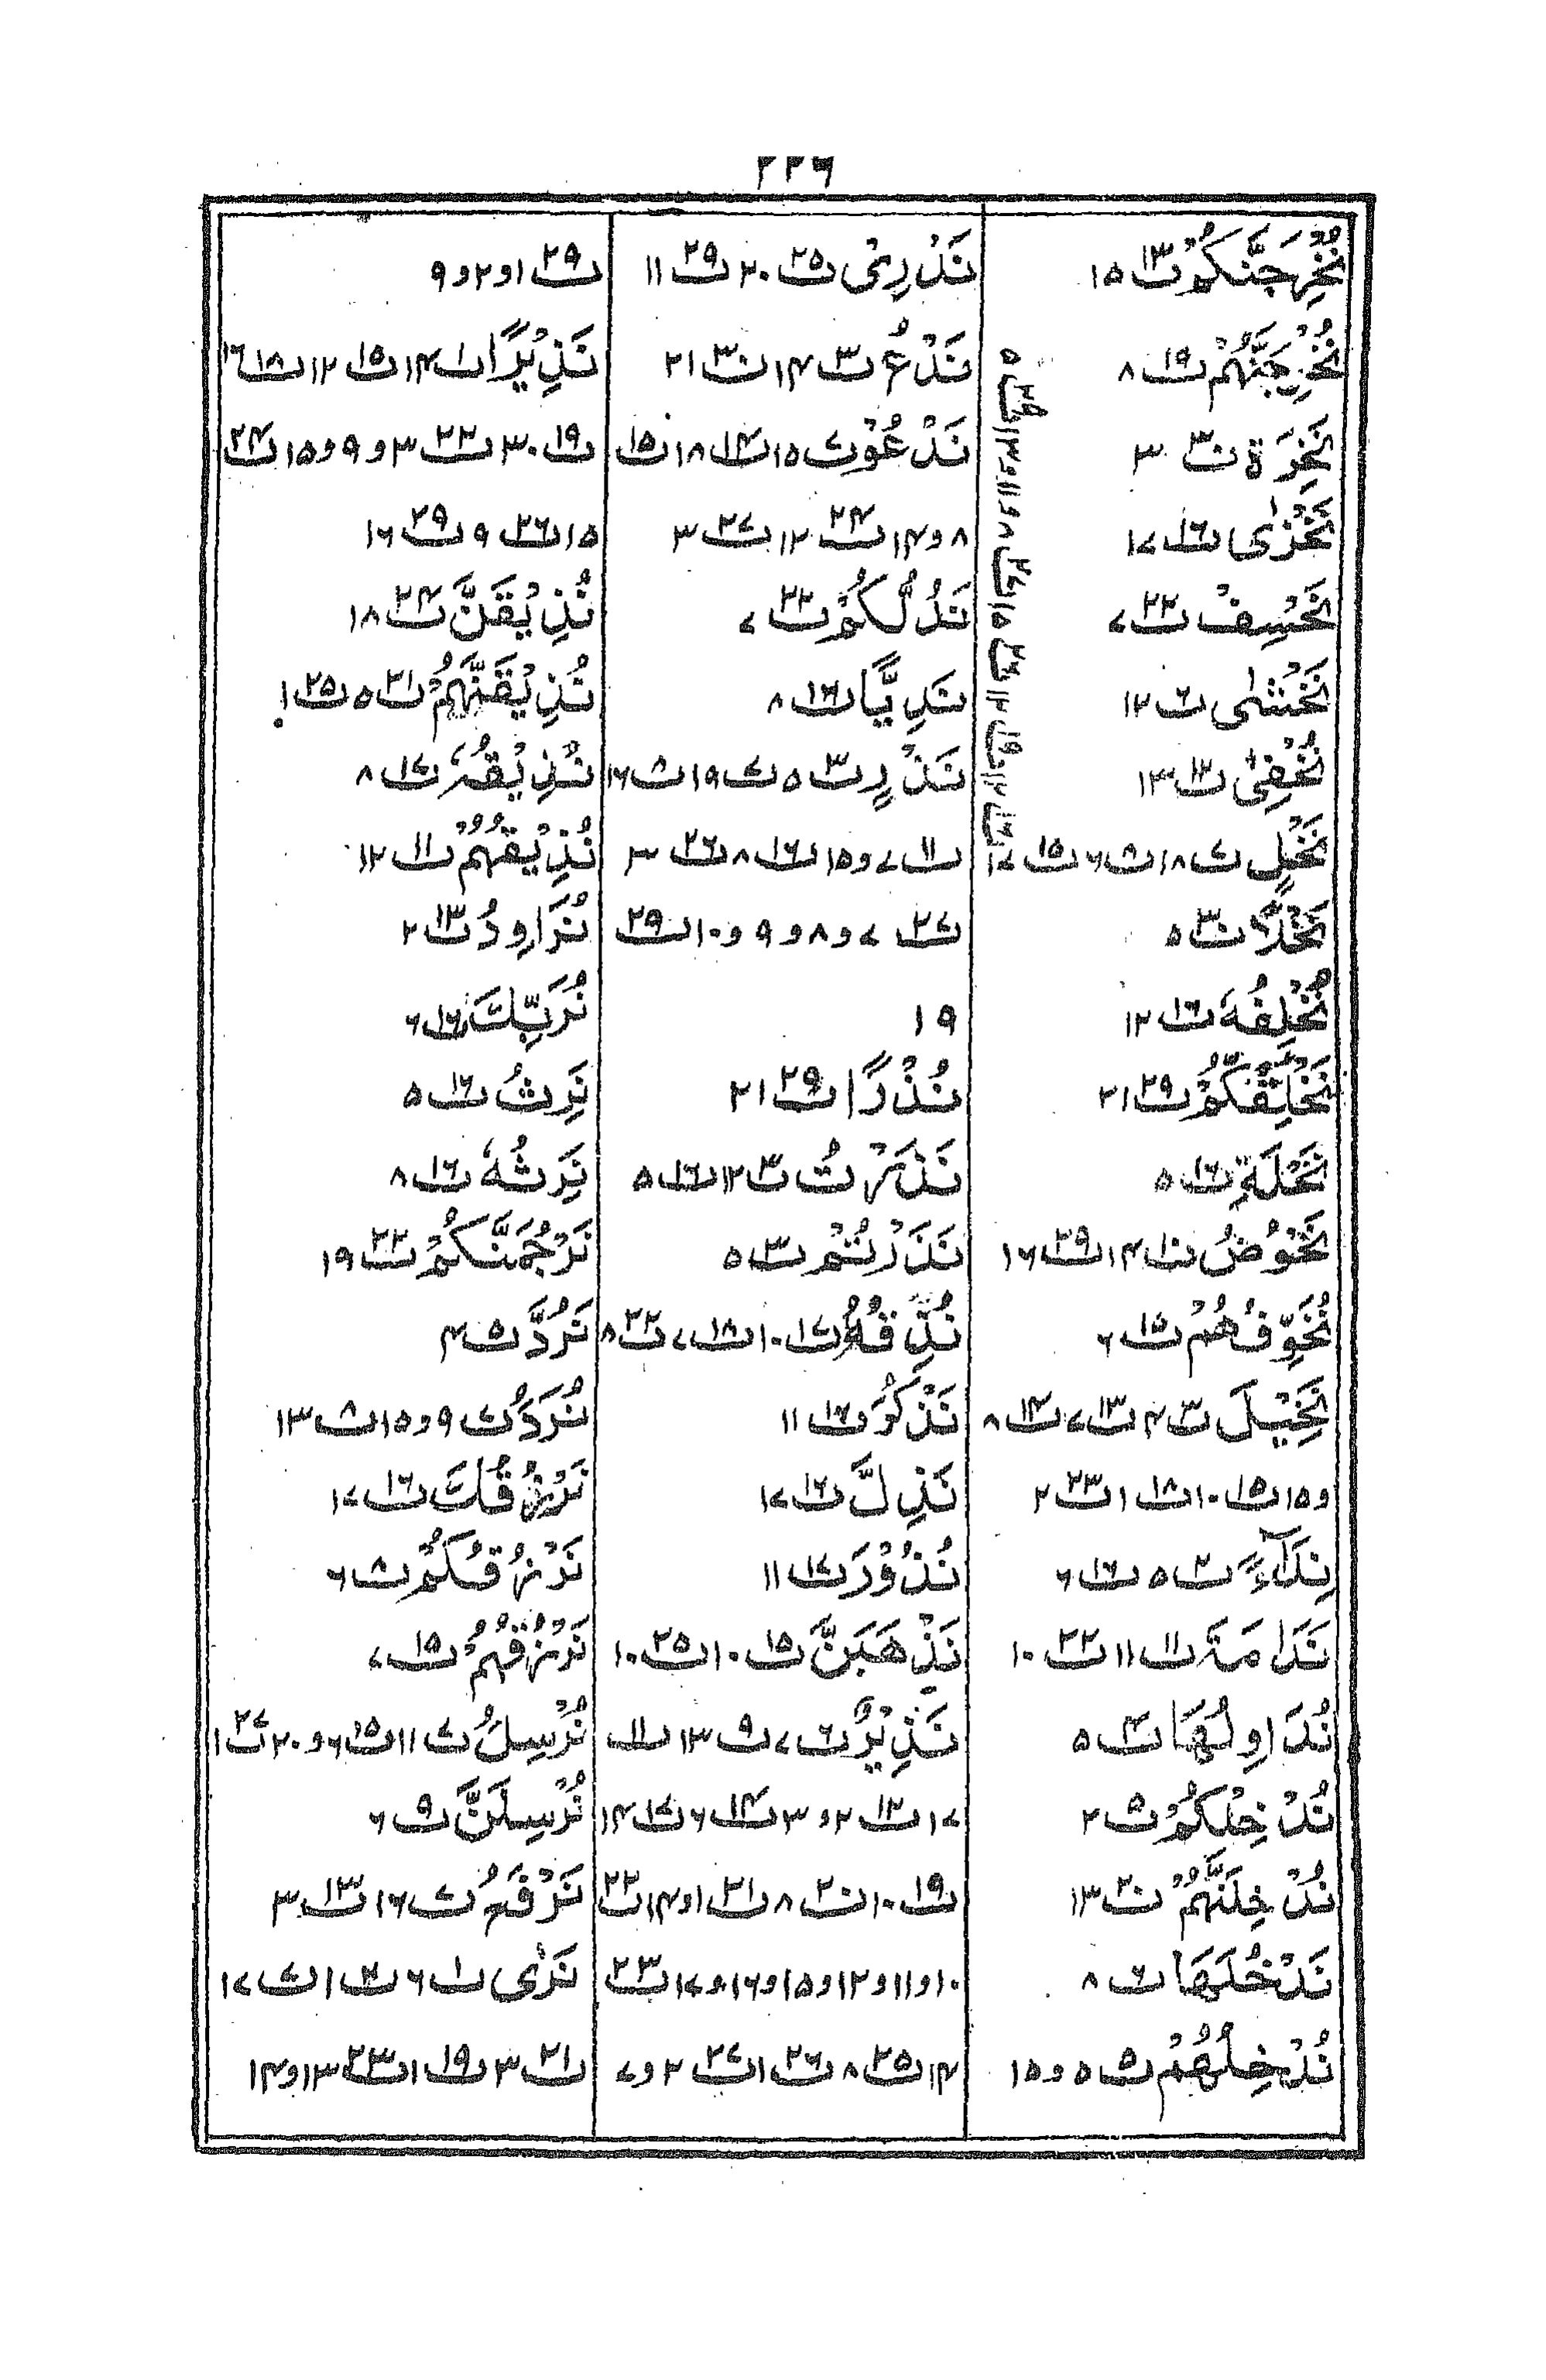 ٢٢٦
نُخْرِجَنَّكُمْ ت١٣ ١٥
نُخْرِجَنَّهُمْ ت١٩ ٨
نَخِرَةً ت٣٠ ٣
نَخْزٰى ت١٦ ١٧
نَخْسِفْ ت٢٢ ٧
نَخْشٰى ت٦ ١٢
نُخْفِىْ ت١٣ ١٣
نَخْلٍ ت٧ ١٨ ت٨ ٦ ت١٥ ١٧
نَخْلًا ت٣٠ ٥
نُخْلِفُهٗ ت١٦ ١٢
نَخْلُقْكُّمْ ت٢٩ ٢١
نَخْلَةِ ت١٦ ٥
نَخُوْضُ ت١٠ ١٤ ت٢٩ ١٦
نُخَوِّفُهُمْ ت١٥ ٦
نَخِيْلَ ت٣ ٤ ت١٣ ٧ ت١٤ ٨
و١٥ ت١٥ ١٠ ت١٨ ١ ت٢٣ ٢
نِدَآءً ت٢ ٥ ت١٦ ٦
نَدَامَةَ ت١١ ١١ ت٢٢ ١٠
نُدَاوِلُهَا ت٤ ٥
نُدْخِلْكُمْ ت٥ ٢
نُدْخِلَنَّهُمْ ت٢٠ ١٣
نَدْخُلَهَا ت٦ ٨
نُدْخِلُهُمْ ت٥ ٥ و١٥
نَدْرِىْ ت٢٥ ٢٠ ت٢٩ ١١
نَدْعُ ت٣ ١٤ ت٣٠ ٢١
نَدْعُوْ ت٧ ١٥ ت١٤ ١٨ ت١٥
٨ و١٤ ت٢٤ ١٢ ت٢٧ ٣
نَدُلُّكُمْ ت٢٢ ٧
نَدِيًّا ت١٦ ٨
نَذْرٍ ت٣ ٥ ت٧ ١٩ ت٨ ١٦
ت١١ ٧ و١٥ ت١٦ ٨ ت٢٦ ٣
ت٢٧ ٧ و٨ و٩ و١٠ ت٢٩
١٩
نُذْرًا ت٢٩ ٢١
نَذَرْتُ ت٣ ١٢ ت١٦ ٥
نَذَرْتُمْ ت٣ ٥
نُذِقْهُ ت١٧ ١٠ ت١٨ ٧ ت٢٢ ٨
نَذْكُرَ ت١٦ ١١
نَذِلَّ ت١٦ ١٧
نُذُوْرَ ت١٧ ١١
نَذْهَبَنَّ ت١٥ ١٠ ت٢٥ ١٠
نَذِيْرٌ ت٦ ٧ ت٩ ١٣ ت١١
١٧ ت١٢ ٢ و٣ ت١٤ ٦ ت١٧ ١٤
ت١٩ ١٠ ت٢٠ ٨ ت٢١ ١ و١٤ ت٢٢
١٠ و١١ و١٢ و١٥ و١٦ و١٧ ت٢٣
١٤ ت٢٥ ٨ ت٢٦ ١ ت٢٧ ٢ و٧
ت٢٩ ١ و٢ و٩
نَذِيْرًا ت١ ١٤ ت١٥ ١٢ ت١٨ ١٦
ت١٩ ٣٠ ت٢٢ ٣ و٩ و١٥ ت٢٤
١٥ ت٢٦ ٩ ت٢٩ ١٦
نُذِيْقَنَّ ت٢٤ ١٨
نُذِيْقَنَّهُمْ ت٢١ ٥ ت٢٥ ١
نُذِيْقُهٗ ت١٧ ٨
نُذِيْقُهُمْ ت١١ ١٢
نُرَاوِدُ ت١٣ ٢
نُرَبِّكَ ت١٦ ٦
نَرِثُ ت١٦ ٥
نَرِثُهٗ ت١٦ ٨
نَرْجُمَنَّكُمْ ت٢٢ ١٩
نَرُدَّ ت٥ ٤
نُرَدُّ ت٧ ٩ و١٥ ت٨ ١٣
نَرْزُقُكَ ت١٦ ١٧
نَرْزُقُكُمْ ت٨ ٦
نَرْزُقُهُمْ ت١٥ ٧
نُرْسِلُ ت٧ ١١ ت١٥ ٦ و٢٠ ت٢٧ ١
نُرْسِلَنَّ ت٩ ٦
نَرْفَعُ ت٧ ١٦ ت١٣ ٣
نَرٰى ت١ ٦ ت٢ ١ ت٧ ١٧
ت٢١ ٣ ت١٩ ١ ت٢٣ ١٣ و١٤